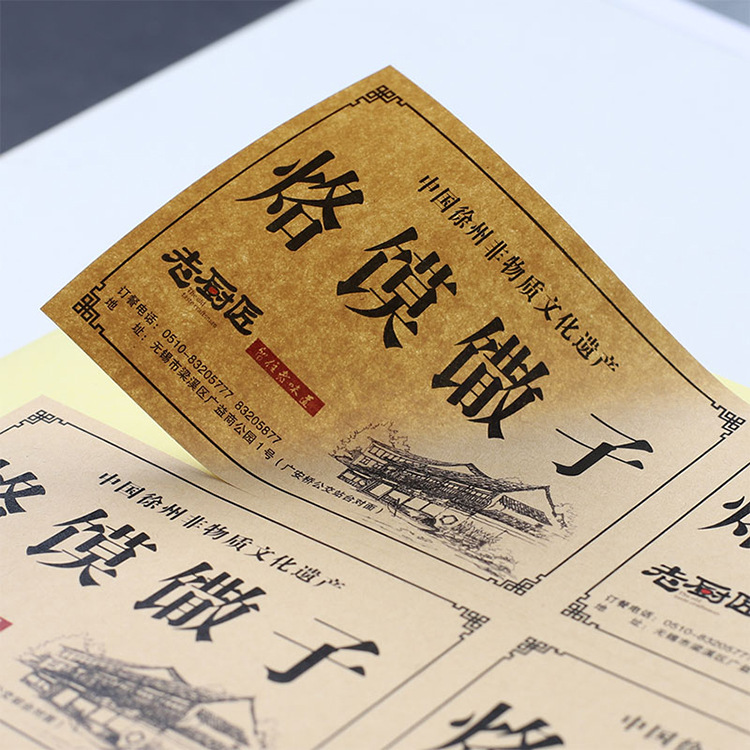 中国徐州非物质文化遗产
烙馍馓子
老厨匠
订餐电话：0510-83205777 83205877
地 址：无锡市梁溪区广益商公园1号（广安桥公交站台对面）
中国徐州非物质文化遗产
烙馍馓子
老厨匠
订餐电话：0510-83205777
地 址：无锡市梁溪区广益
烙
中国徐